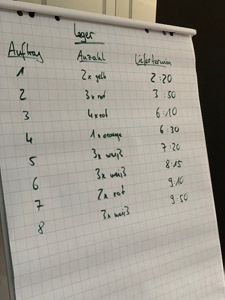 Lager
Auftrag Anzahl Liefertermin
1 2x gelb 2:20
2 3x rot 3:50
3 4x rot 6:10
4 1x orange 6:30
5 3x weiß 7:20
6 3x weiß 8:15
7 2x rot 9:10
8 3x weiß 9:50